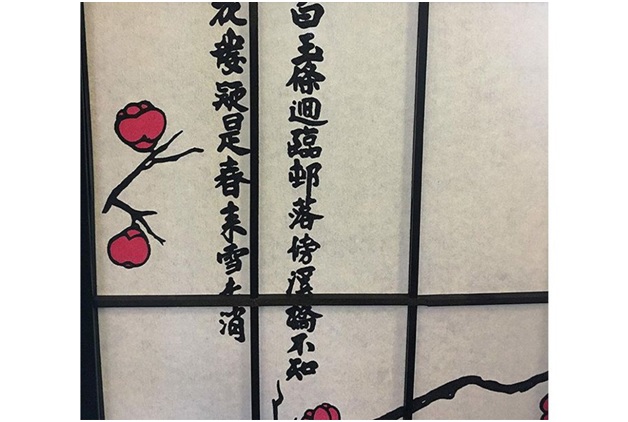 白玉條迴臨邨落傍溪橋不知
花發疑是春来雪未消